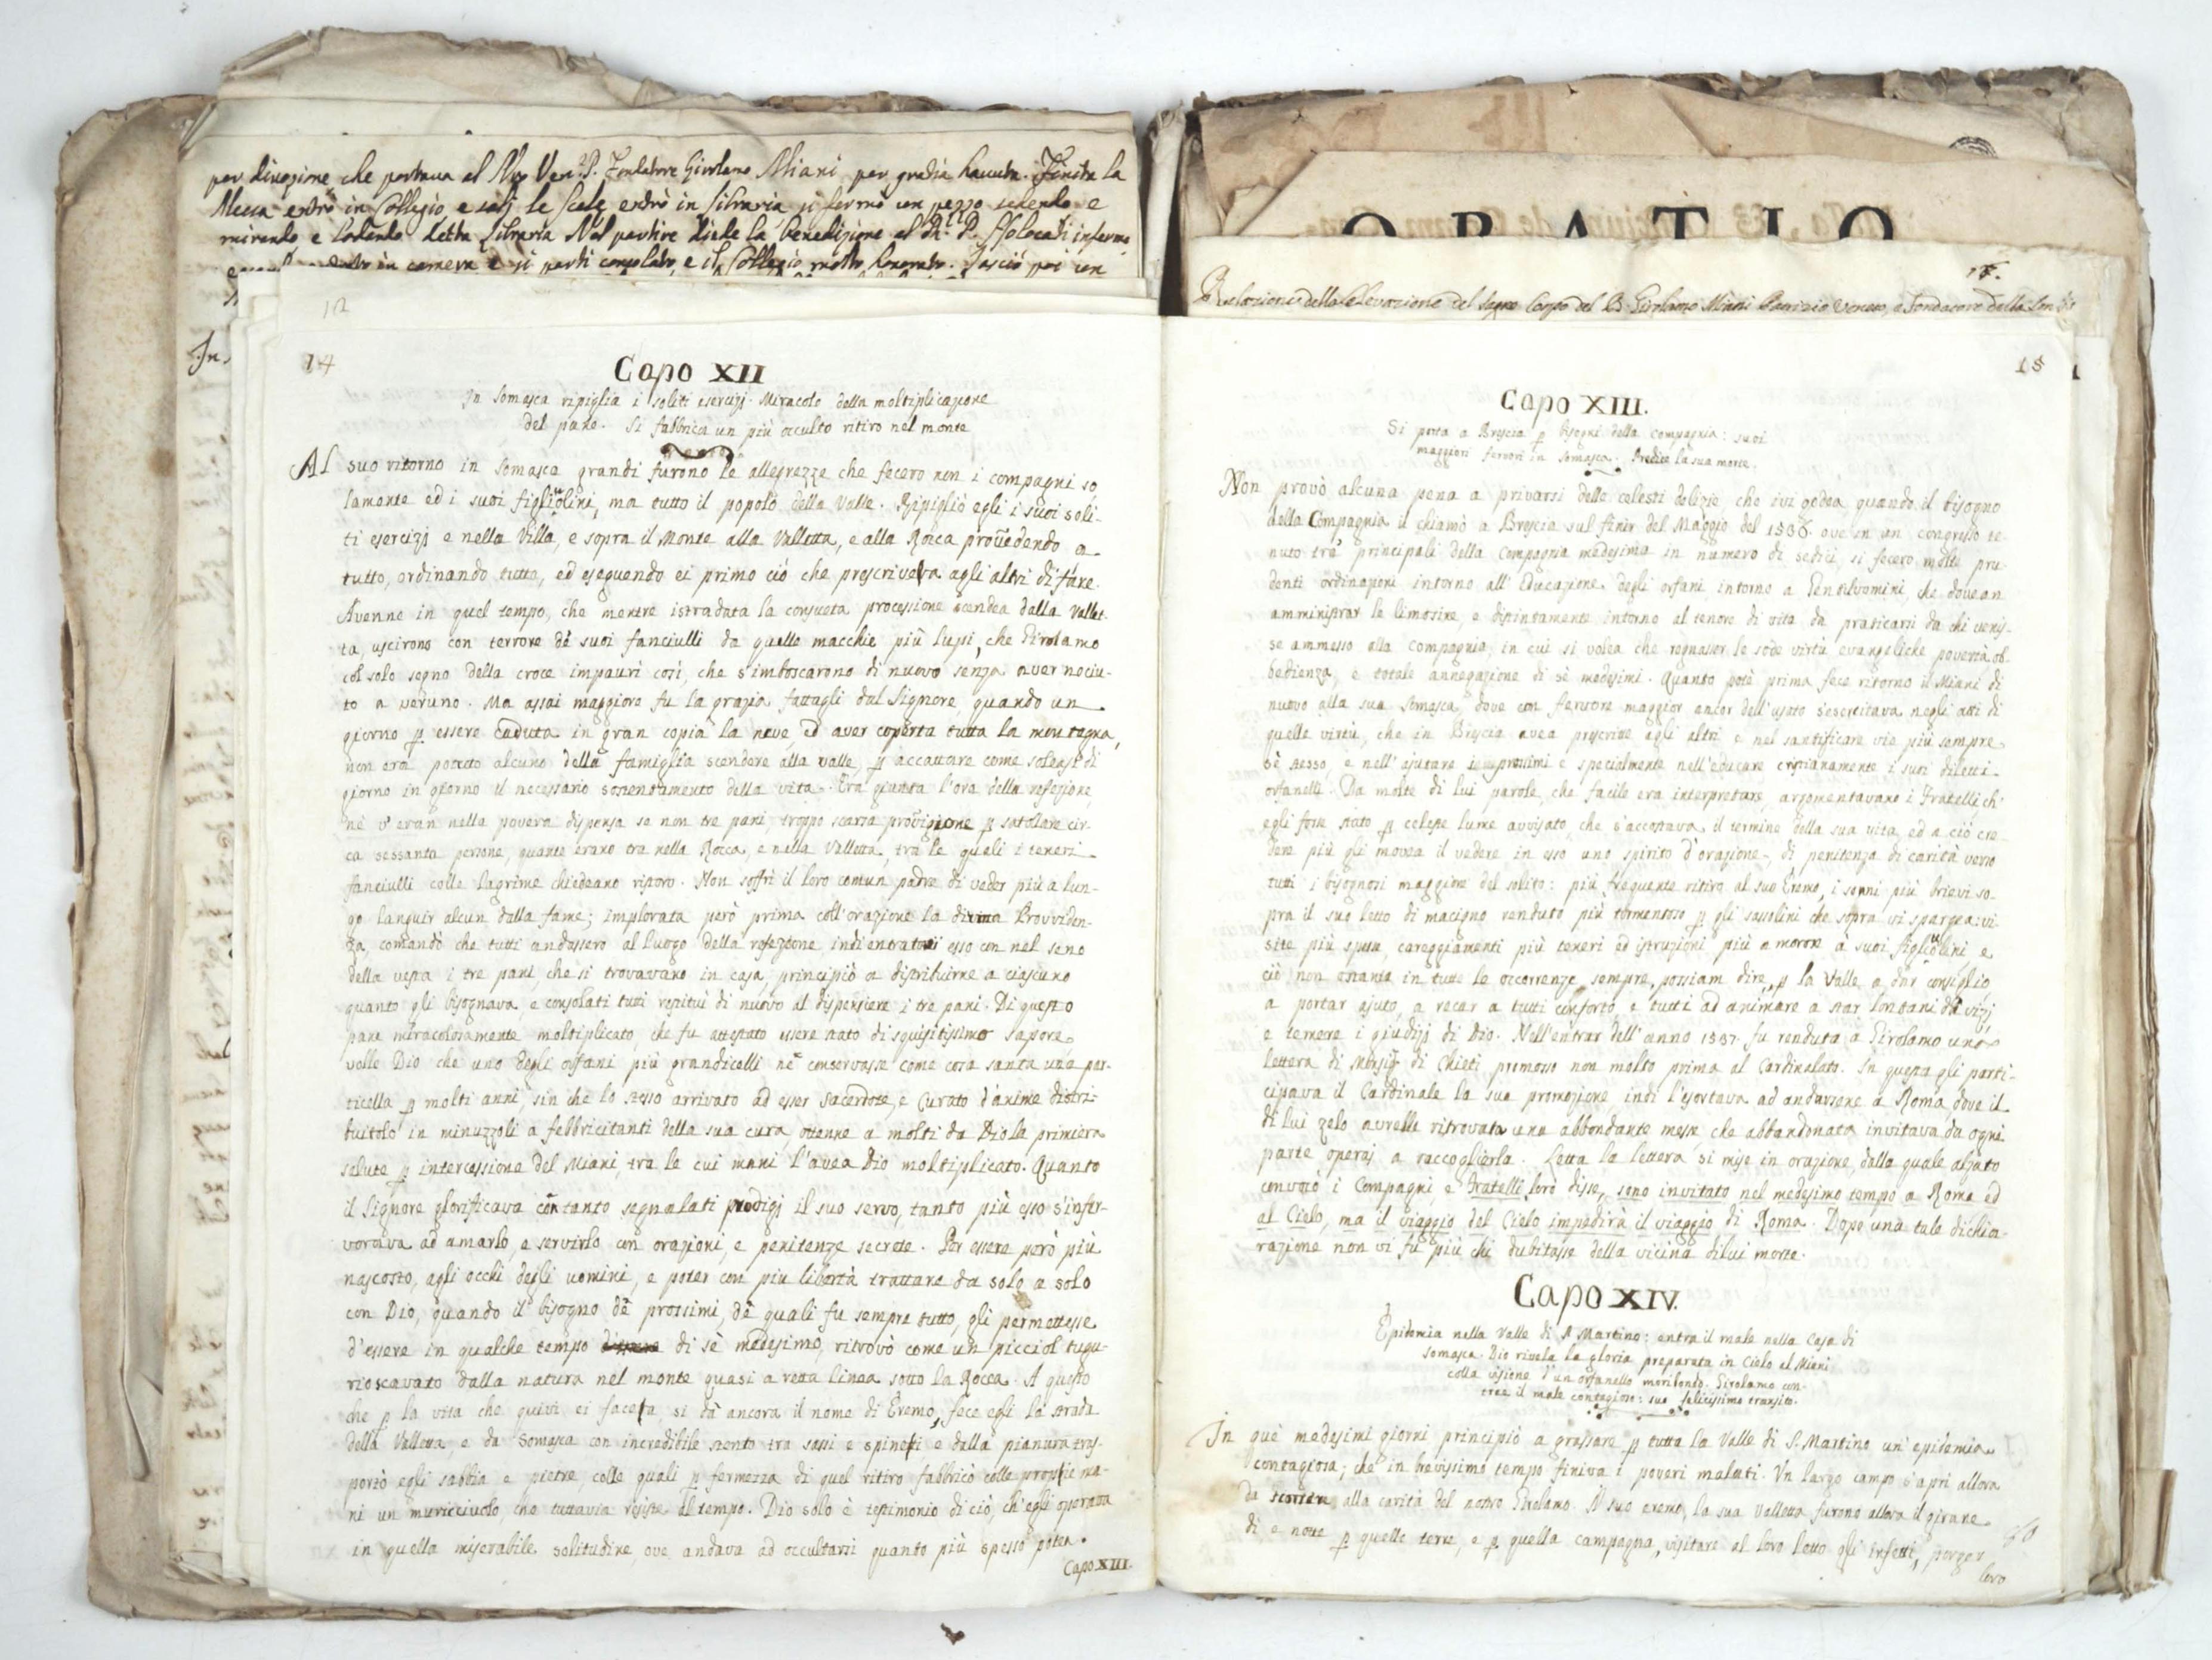 per divozione che portava al Nro Ven. P. Fondatore Girolamo Miani per grazia havuta. Finita la
Messa entrò in Collegio, e salì le scale entrò in libraria si fermò un pezzo sedendo e
mirando e lodando detta libraria. Nel partire diede la benedizione al infermo
in camera e si partì consolato, e il Collegio molto honorato. Lasciò poi un
In
12
14
Capo XII
In Somasca ripiglia i soliti esercizj. Miracolo della moltiplicazione
del pane. Si fabbrica un più occulto ritiro nel monte
Al suo ritorno in Somasca grandi furono le allegrezze che fecero non i compagni so
lamente ed i suoi figliolini, ma tutto il popolo della Valle. Ripigliò egli i suoi soli-
ti esercizj e nella Villa, e sopra il Monte alla Valletta, e alla Rocca provedendo a
tutto, ordinando tutto, ed eseguendo ei primo ciò che prescriveva agli altri di fare.
Avenne in quel tempo, che mentre istradata la consueta processione scendea dalla Vallet-
ta, uscirono con terrore de' suoi fanciulli da quelle macchie più lupi, che Girolamo
col solo segno della croce impaurì così, che s'imboscarono di nuovo senza aver nociu-
to a veruno. Ma assai maggiore fu la grazia fattagli dal Signore, quando un
giorno p essere caduta in gran copia la neve, ed aver coperta tutta la montagna,
non era potuto alcuno della famiglia scendere alla valle, p accattare come soleasi di
giorno in giorno il necessario sostentamento della vita. Era giunta l'ora della refezione,
nè v'eran nella povera dispensa se non tre pani, troppo scarsa provigione p satollare cir-
ca sessanta persone, quante erano tra nella Rocca, e nella Valletta, tra le quali i teneri
fanciulli colle lagrime chiedeano ristoro. Non soffrì il loro comun padre di veder più a lun-
go languir alcun dalla fame; implorata però prima coll'orazione la divina Provviden-
za, comandò che tutti andassero al luogo della refezione indi entratovi esso con nel seno
della vesta i tre pani, che si trovavano in casa, principiò a distribuirne a ciascuno
quanto gli bisognava, e consolati tutti restituì di nuovo al dispensiere i tre pani. Di questo
pane miracolosamente moltiplicato, che fu attestato essere stato di squisitissimo sapore,
volle Dio che uno degli orfani più grandicelli nè conservasse come cosa santa una par-
ticella p molti anni, sin che lo stesso arrivato ad esser Sacerdote, e Curato d'anime distri-
buitolo in minuzzoli a febbricitanti della sua cura, ottenne a molti da Dio la primiera
salute p intercessione del Miani, tra le cui mani l'avea Dio moltiplicato. Quanto
il Signore glorificava con tanto segnalati prodigj il suo servo, tanto più esso s'infer-
vorava ad amarlo, e servirlo con orazioni, e penitenze secrete. Per essere però più
nascosto, agli occhi degli uomini, e poter con più libertà trattare da solo a solo
con Dio, quando il bisogno de' prossimi, de' quali fu sempre tutto, gli permettesse
d'essere in qualche tempo di sè medesimo, ritrovò come un picciol tugu-
rio scavato dalla natura nel monte quasi a retta linea sotto la Rocca. A questo
che p la vita che quivi ei facea, si dà ancora il nome di Eremo, fece egli la strada
della Valletta, e da Somasca con incredibile stento tra sassi e spine, e dalla pianura tras-
portò egli sabbia e pietre, colle quali p fermezza di quel ritiro fabbricò colle proprie ma-
ni un muricciuolo, che tuttavia resiste al tempo. Dio solo è testimonio di ciò, ch'egli operava
in quella miserabile solitudine, ove andava ad occultarsi quanto più spesso potea.
Capo XIII.
ORATIO
Relazione della Elevazione del Sagro Corpo del B. Girolamo Miani Patrizio Veneto, e Fondatore della
15
Capo XIII.
Si porta a Brescia p bisogni della compagnia: suoi
maggiori fervori in Somasca. Predice la sua morte.
Non provò alcuna pena a privarsi delle celesti delizie, che ivi godea quando il bisogno
della Compagnia il chiamò a Brescia sul finir del Maggio del 1536. ove in un congresso te-
nuto tra' principali della Compagnia medesima in numero di sedici, si fecero molte pru-
denti ordinazioni intorno all'Educazione degli orfani intorno a Gentiluomini, che dovean
amministrar le limosine, e distintamente intorno al tenore di vita da praticarsi da chi venis-
se ammesso alla Compagnia, in cui si volea che regnasser le sode virtù evangeliche povertà, ob-
bedienza, e totale annegazione di sè medesimi. Quanto potè prima fece ritorno il Miani di
nuovo alla sua Somasca, dove con fervore maggior ancor dell'usato s'esercitava negli atti di
quelle virtù, che in Brescia avea prescritte agli altri e nel santificare vie più sempre
sè stesso, e nell'ajutare i prossimi e specialmente nell'educare cristianamente i suoi diletti
orfanelli. Da molte di lui parole, che facile era interpretare, argomentavano i Fratelli, ch'
egli fosse stato p celeste lume avvisato, che s'accostava il termine della sua vita, ed a ciò cre-
dere più gli movea il vedere in esso uno spirito d'orazione, di penitenza di carità verso
tutti i bisognosi maggiore del solito: più frequente ritiro al suo Eremo, i sonni più brievi so-
pra il suo letto di macigno renduto più tormentoso p gli sassolini che sopra vi spargea: vi-
site più spesse, careggiamenti più teneri ed istruzioni più amorose a suoi figliuolini e
ciò non ostante in tutte le occorrenze sempre, possiam dire, p la Valle, a dar consiglio
a portar ajuto, a recar a tutti conforto, e tutti ad animare a star lontani da vizj
e temere i giudizj di Dio. Nell'entrar dell'anno 1537. fu renduta a Girolamo una
lettera di Monsig. di Chieti promosso non molto prima al Cardinalato. In questa gli parti-
cipava il Cardinale la sua promozione indi l'esortava ad andarsene a Roma dove il
di lui zelo avrebbe ritrovata una abbondante messe che abbandonata invitava da ogni
parte operaj a raccoglierla. Letta la lettera si mise in orazione, dalla quale alzato
convocò i Compagni e Fratelli, loro disse, sono invitato nel medesimo tempo a Roma ed
al Cielo, ma il viaggio del Cielo impedirà il viaggio di Roma. Dopo una tale dichia-
razione non vi fu più chi dubitasse della vicina di lui morte.
Capo XIV.
Epidemia nella Valle di S. Martino: entra il male nella Casa di
Somasca. Dio rivela la gloria preparata in Cielo al Miani
colla visione d'un orfanello moribondo. Girolamo con-
trae il male contagioso: suo felicissimo transito.
In què medesimi giorni principiò a grassare p tutta la Valle di S. Martino un'epidemia
contagiosa; che in brevissimo tempo finiva i poveri malati. Un largo campo s'aprì allora
da scorrere alla carità del nostro Girolamo. Il suo eremo, la sua Valletta furono allora il girare
dì e notte p quelle terre, e p quella campagna, visitare al loro letto gli infetti, porger
loro